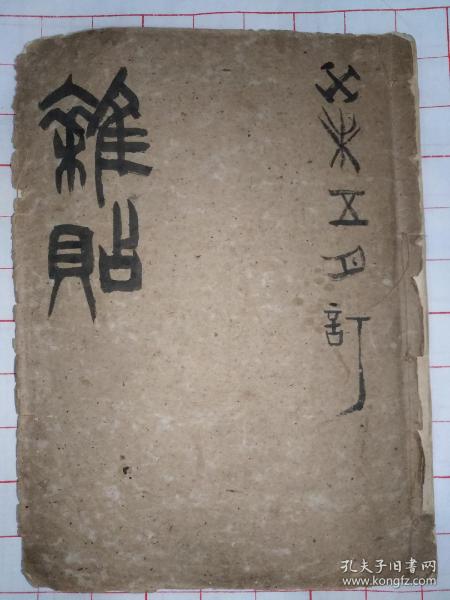 癸未五月訂
雜貼
孔夫子旧书网
www.kongfz.com